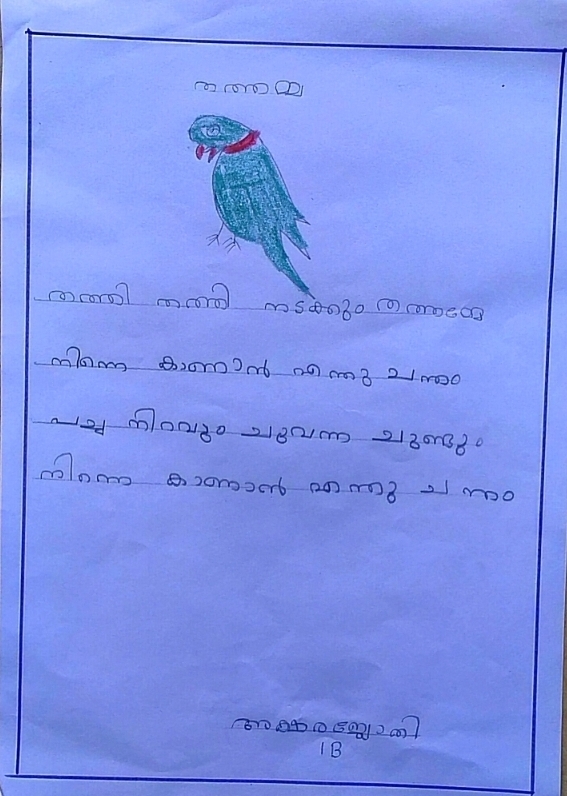 തത്തമ്മ
തത്തി തത്തി നടക്കും തത്തമ്മേ
നിന്നെ കാണാൻ എന്തു ചന്തം
പച്ച നിറവും ചുവന്ന ചുണ്ടും
നിന്നെ കാണാൻ എന്തു ചന്തം
അക്ഷരജ്യോതി
1B